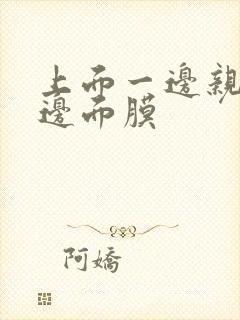 上而一邊親
邊而膜
阿嬌